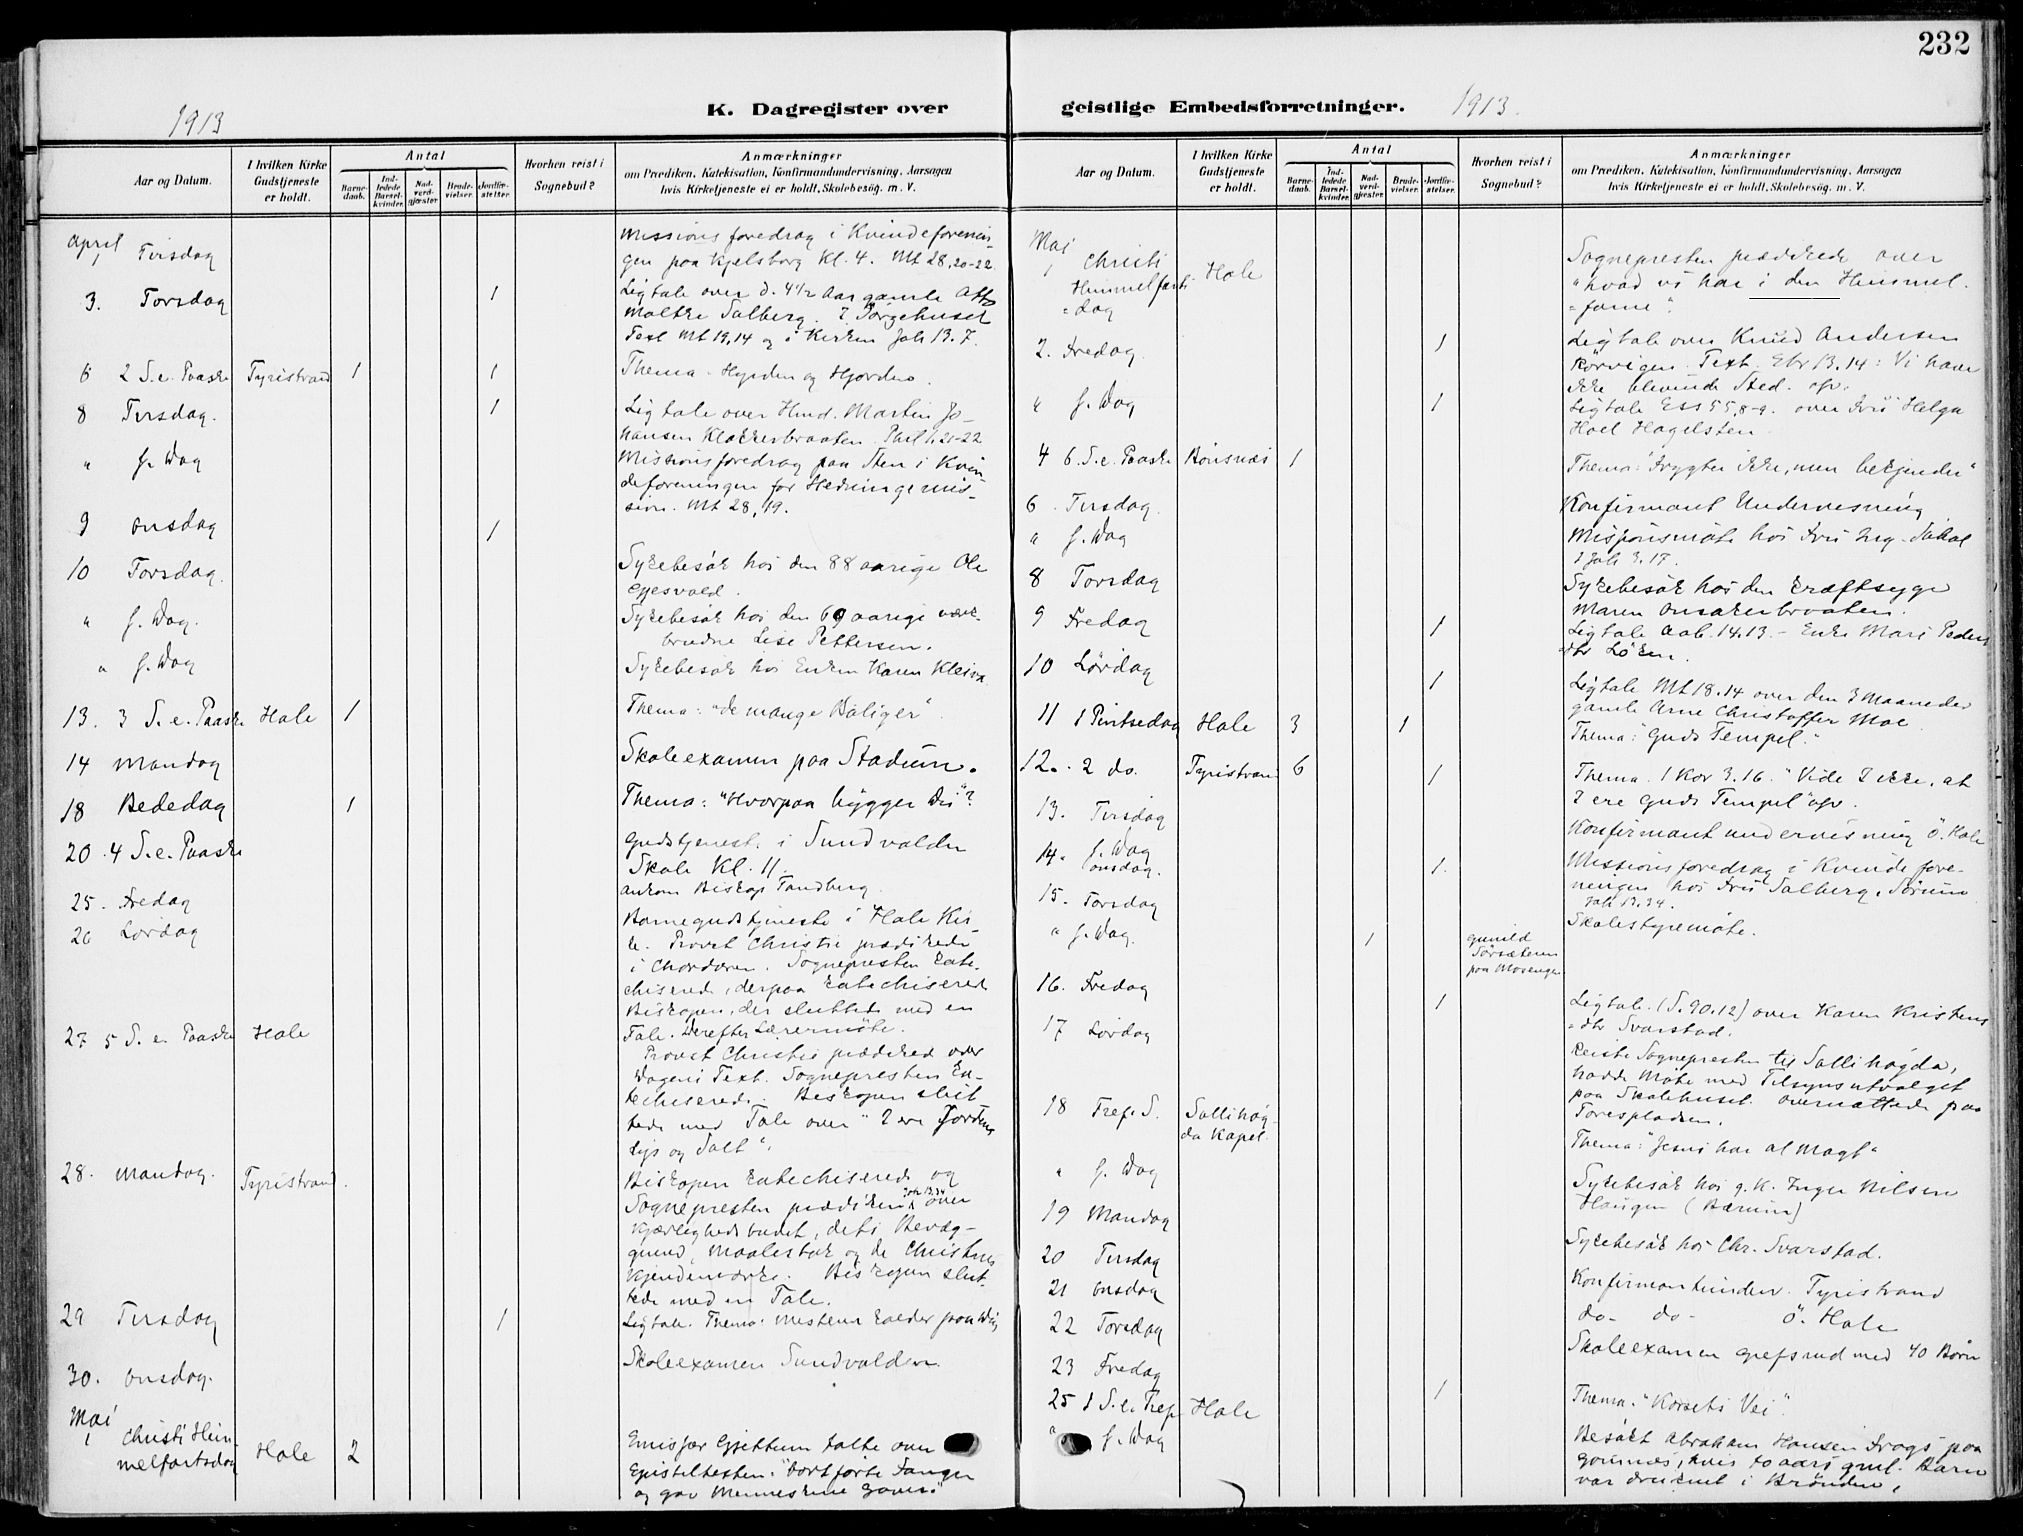 232
1913
K. Dagregister over
Aar og Datum.
I hvilken Kirke
Gudstjeneste
er holdt.
Antal
Barne-
daab.
Ind-
ledede
Barsel-
kvinder.
Nad-
verd-
gjæster.
Brude-
vielser.
Jordfæ-
stelser.
Hvorhen reist i
Sognebud?
Anmærkninger
om Prædiken, Katekisation, Konfirmandundervisning. Aarsagen
hvis Kirketjeneste ei er holdt, Skolebesøg. m. V.
April
1 Tirsdag
Missions foredrag i Kvindeforenin-
gen paa Kjelsborg Kl. 4. Mt 28,20-22.
3. Torsdag 1
Ligtale over d. 4 1/2 Aar gamle Otto
Moltke Salberg. I Sørgehuset
Text Mt 19,14 og i Kirken Joh 13.7.
6 2 S. e. Paaske Tyristrand 1 1
Thema. Hyrden og Hjorden.
8 Tirsdag. 1
Ligtale over Hmd. Martin Jo-
hansen Klokkerbraaten. Phil 1,21-22
" S. Dag
Missionsforedrag paa Sten i Kvin
deforeningen for Hedningemis-
sion. Mt 28,19.
9 Onsdag 1
10 Torsdag.
Sykebesøk hos den 88 aarige Ole
Gjesvold.
" S. Dag.
Sykebesøk hos den 69 aarige værk-
brudne Lise Pettersen.
" S. Dag
Sykebesøk hos Enken Karen Kleiva
13. 3 S. e. Paaske Hole 1
Thema: "de mange Boliger".
14 Mandag
Skoleexamen paa Stadum.
18 Bededag 1
Thema: "Hvorpaa bygger Du"?
20. 4 S. e. Paaske
Gudstjenest. i Sundvolden
Skole Kl. 11.
25. Fredag
ankom Biskop Tandberg.
26 Lördag
Barnegudstjeneste i Hole Kir-
ke. Provst Christie prædikede
i Chordøren. Sognepresten kate-
chiserede, derpaa katechiserede
Biskopen, der sluttede med en
Tale. Derefter Lærermøte.
27 5 S. e. Paaske Hole
Provst Christie prædiked over
Dagens Text. Sognepresten ka-
techiserede. Biskopen slut
tede med Tale over "I ere Jordens
Lys og Salt".
28. Mandag. Tyristrand.
Biskopen katechiserede og
Sognepresten prædiken Joh 13.34 over
Kjærlighedsbudet, dets Bevæg-
grund, Maalestok og de Christnes
Kjendemærke. Biskopen slut-
tede med en Tale.
29 Tirsdag 1
Ligtale. Thema: Mesteren kalder paa Dig
30. Onsdag.
Skoleexamen Sundvolden.
Mai
1 Christi Him-
melfartsdag Hole 2
Emissær Gjettum talte over
Epistelteksten: "bortførte Fanger
og gav Menneskene Gaver."
geistlige Embedsforretninger.
1913.
Aar og Datum.
I hvilken Kirke
Gudstjeneste
er holdt.
Antal
Barne-
daab.
Ind-
ledede
Barsel-
kvinder.
Nad-
verd-
gjæster.
Brude-
vielser.
Jordfæ-
stelser.
Hvorhen reist i
Sognebud?
Anmærkninger
om Prædiken, Katekisation, Konfirmandundervisning. Aarsagen
hvis Kirketjeneste ei er holdt, Skolebesøg. m. V.
Mai
1 Christi
Himmelfarts-
dag Hole
Sognepresten prædikede over
"hvad vi har i den Himmel-
farne".
2. Fredag. 1
Ligtale over Knud Andersen
Rørvigen. Text. Ebr 13.14: Vi have
ikke blivende Sted. osv.
" S. Dag 1
Ligtale Es 55,8-9. over Fru Helga
Hoel Hagelsten.
4 6. S. e. Paaske Bönsnæs 1
Thema: "Frygter ikke, men bekjender"
6. Tirsdag.
Konfirmant Undervisning
" S. Dag
Missionsmøte hos Fru Ing.
1 Joh 3.17.
8 Torsdag
Sykebesøk hos den kræftsyge
Maren Onsakerbraaten.
9 Fredag 1
Ligtale Aab. 14.13. - Enke Mari Peders
dtr Löken.
10 Lördag 1
Ligtale Mt 18.14 over den 3 Maaneder
gamle Arne Christoffer Moe
11 1 Pintsedag Hole 3 1
Thema: "Guds Tempel."
12. 2 do. Tyristrand 6 1
Thema. 1 Kor 3.16. "Vide I ikke, at
I ere Guds Tempel" osv.
13. Tirsdag
Konfirmantundervisning Ö. Hole
14. S. Dag
Onsdag. 1.
Missionsforedrag i Kvindefore-
ningen hos Fru Salberg, Sørum
Joh 13.34.
15. Torsdag
Skolestyremöte.
" S. Dag. 1
Gunild
Sörsæteren
paa Mosengen
16. Fredag 1
Ligtale. (S. 90.12) over Karen Kristens
dtr Svarstad.
17 Lördag
Reiste Sognepresten til Sollihögda,
hadde Möte med Tilsynsutvalget
paa Skolehuset. Overnattede paa
Torespladsen.
18 Tref. S. Sollihög-
da Kapel.
Thema: "Jesus har al Magt"
" S. Dag
Sykebesök hos g. K. Inger Nilsen
Haugen (Bærum)
19 Mandag
Sykebesök hos Chr. Svarstad.
20 Tirsdag
Konfirmantunderv. Tyristrand
21 Onsdag
do- do- Ö. Hole
22 Torsdag
Skoleexamen Gjefsrud med 40 Børn
23 Fredag
25 1 S. e. Tref Hole 1
Thema: "Korsets Vei".
" S. Dag
Besökt Abraham Hansen Frogs paa
Gomnes, hvis to aars gml. Barn
var druknet i Brönden,